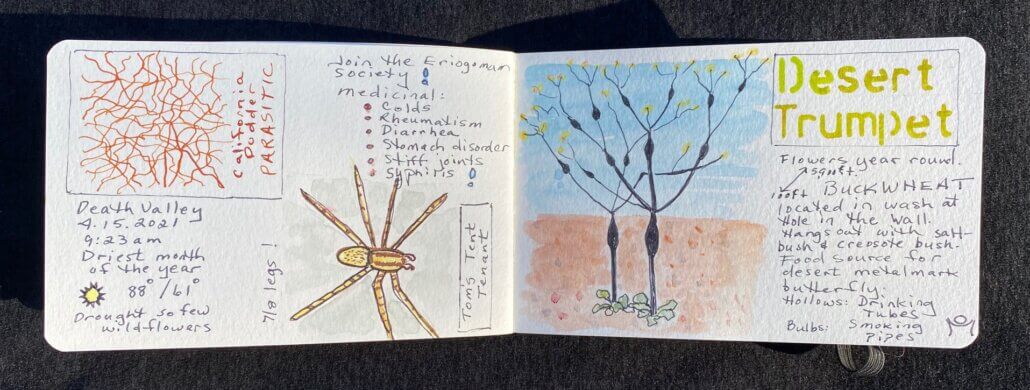 California
Dodder
PARASITIC
Death Valley
4.15.2021
9:23 am
Driest month
of the year
88°/61°
Drought so few
wildflowers
Join the Eriogonum
Society
medicinal:
Colds
Rheumatism
Diarrhea
Stomach disorder
Stiff joints
Syphilis
7/8 legs!
Tom's Tent
Tenant
Desert
Trumpet
Flowers year round.
BUCKWHEAT
located in wash at
Hole in the Wall.
Hangs out with salt-
bush & creosote bush.
Food source for
desert metalmark
butterfly.
Hollows: Drinking
Tubes
Bulbs: Smoking
Pipes